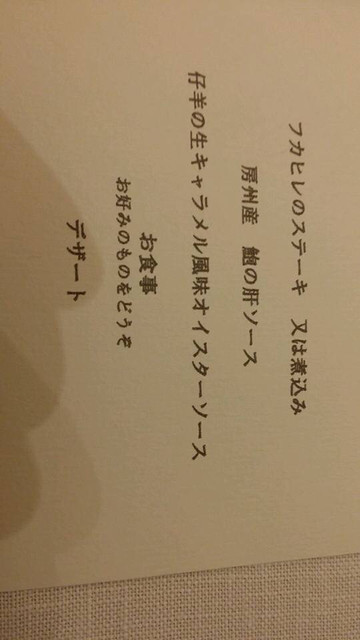 フカヒレのステーキ 又は煮込み
房州産 鮑の肝ソース
仔羊の生キャラメル風味オイスターソース
お食事
お好みのものをどうぞ
デザート